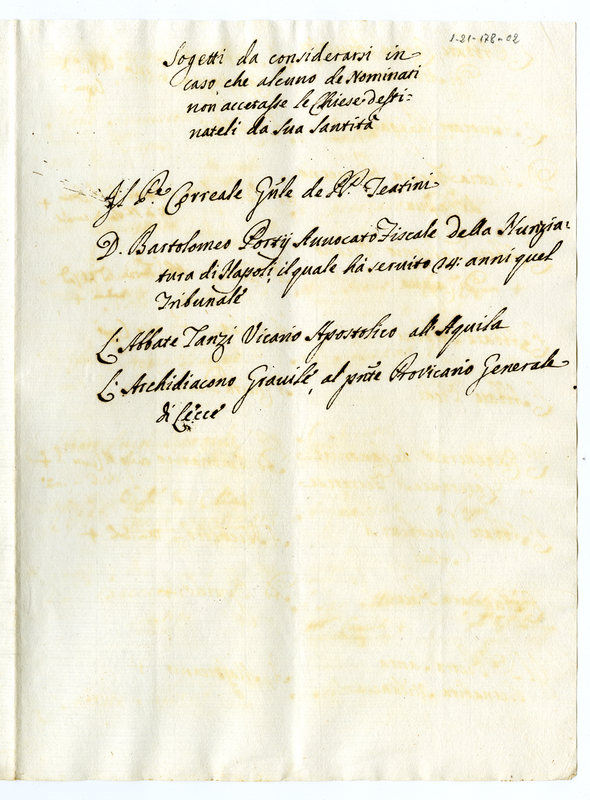 1-21-178-02
Sogetti da considerarsi in
caso che alcuno de Nominati
non accetasse le Chiese desti:
nateli da sua santità
Il P.re Correale Gn̄le de PP. Teatini
D. Bartolomeo Portij Auuocato Fiscale della Nunzia:
tura di Napoli, il quale hà seruito 24: anni quel
Tribunale
L'Abbate Tanzi Vicario Apostolico all'Aquila
L'Archidiacono Grauile, al pn̄te Provicario Generale
di Lecce